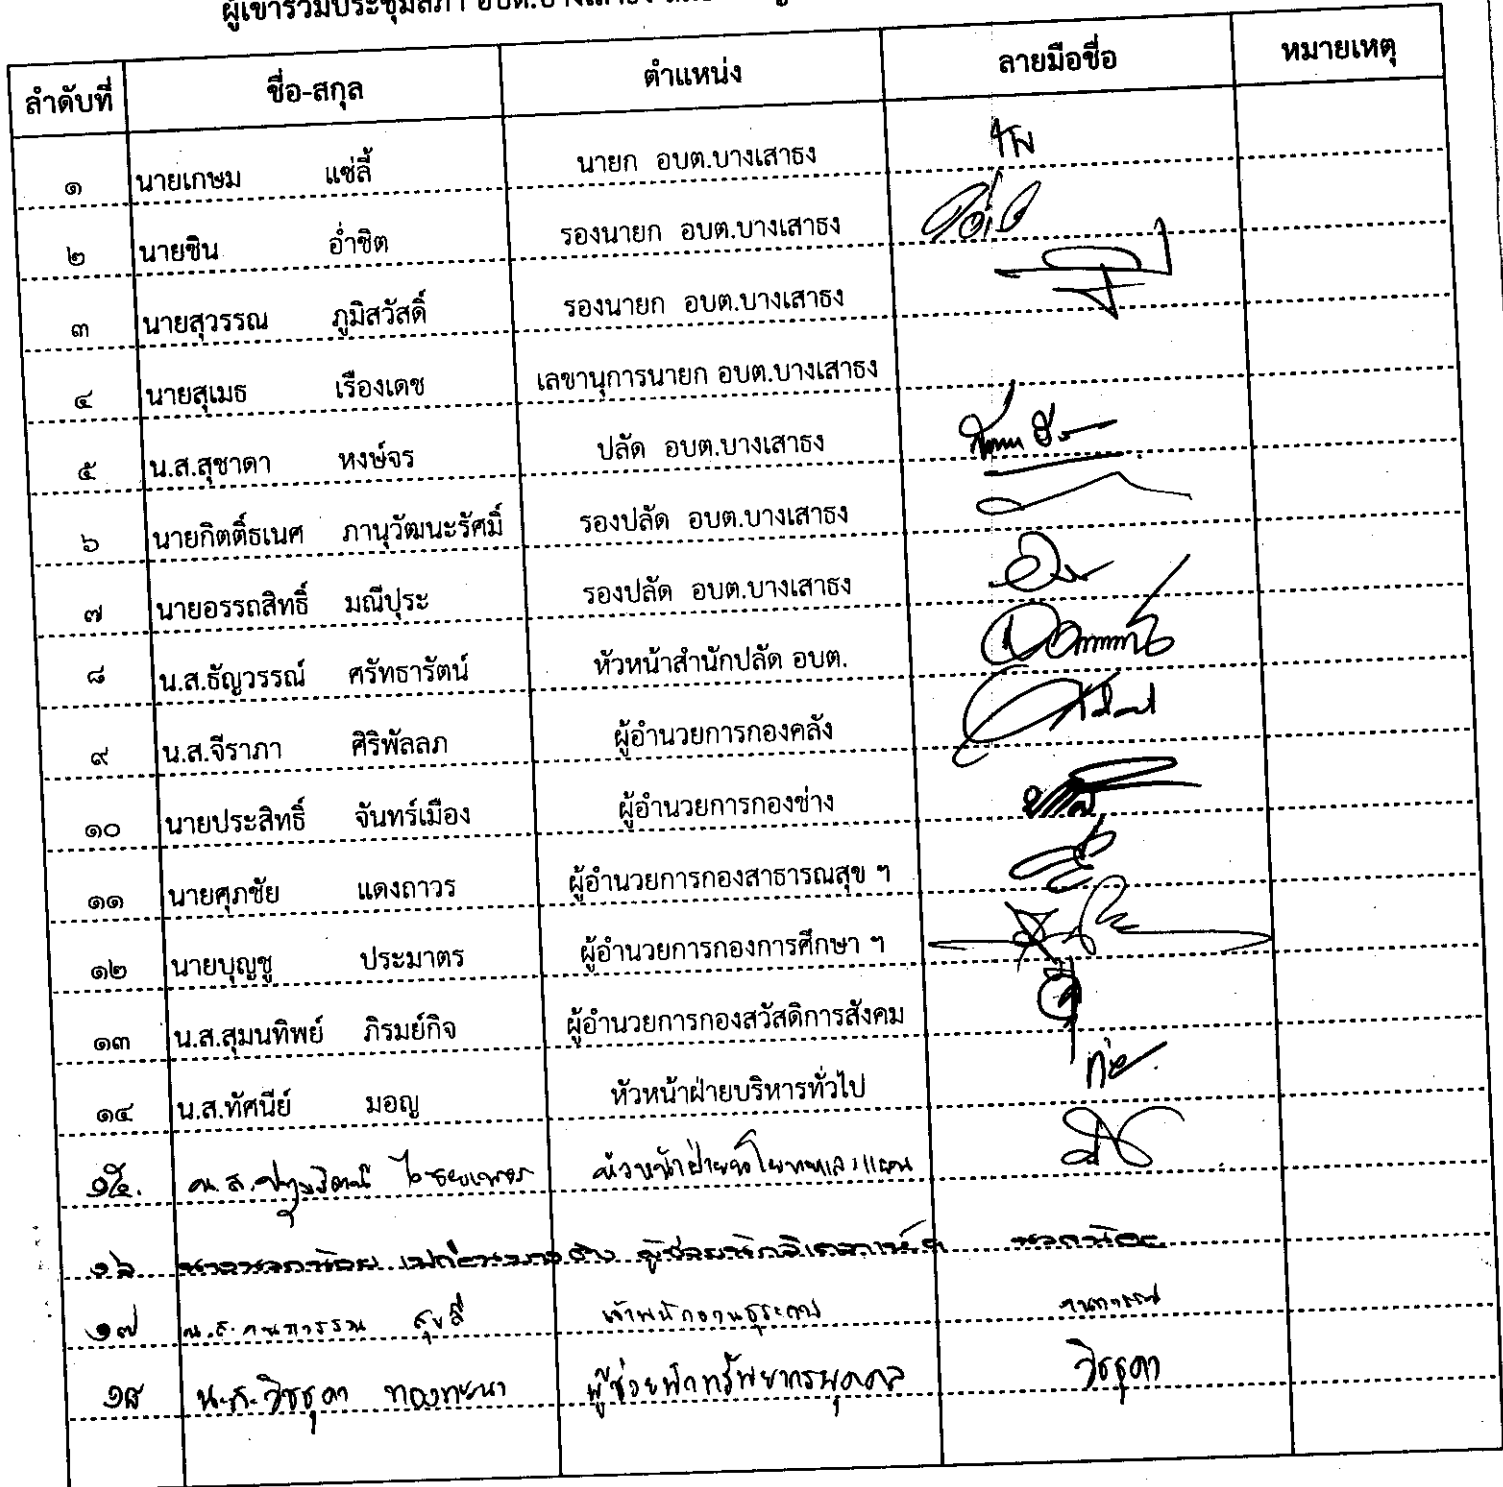 ผู้เข้าร่วมประชุมสภา อบต.บางเสาธง
ลำดับที่ ชื่อ-สกุล ตำแหน่ง ลายมือชื่อ หมายเหตุ
๑ นายเกษม แซ่ลี้ นายก อบต.บางเสาธง
๒ นายชิน อ่ำชิต รองนายก อบต.บางเสาธง
๓ นายสุวรรณ ภูมิสวัสดิ์ รองนายก อบต.บางเสาธง
๔ นายสุเมธ เรืองเดช เลขานุการนายก อบต.บางเสาธง
๕ น.ส.สุชาดา หงษ์จร ปลัด อบต.บางเสาธง
๖ นายกิตติ์ธเนศ ภานุวัฒนะรัศมิ์ รองปลัด อบต.บางเสาธง
๗ นายอรรถสิทธิ์ มณีปุระ รองปลัด อบต.บางเสาธง
๘ น.ส.ธัญวรรณ์ ศรัทธารัตน์ หัวหน้าสำนักปลัด อบต.
๙ น.ส.จีราภา ศิริพัลลภ ผู้อำนวยการกองคลัง
๑๐ นายประสิทธิ์ จันทร์เมือง ผู้อำนวยการกองช่าง
๑๑ นายศุภชัย แดงถาวร ผู้อำนวยการกองสาธารณสุข ฯ
๑๒ นายบุญชู ประมาตร ผู้อำนวยการกองการศึกษา ฯ
๑๓ น.ส.สุมนทิพย์ ภิรมย์กิจ ผู้อำนวยการกองสวัสดิการสังคม
๑๔ น.ส.ทัศนีย์ มอญ หัวหน้าฝ่ายบริหารทั่วไป
๑๕. น.ส. หัวหน้าฝ่ายนโยบายและแผน
๑๖
๑๗ น.ส. สุขสี เจ้าพนักงานธุรการ
๑๘ น.ส. วิชชุดา ผู้ช่วยนักทรัพยากรบุคคล วิชชุดา